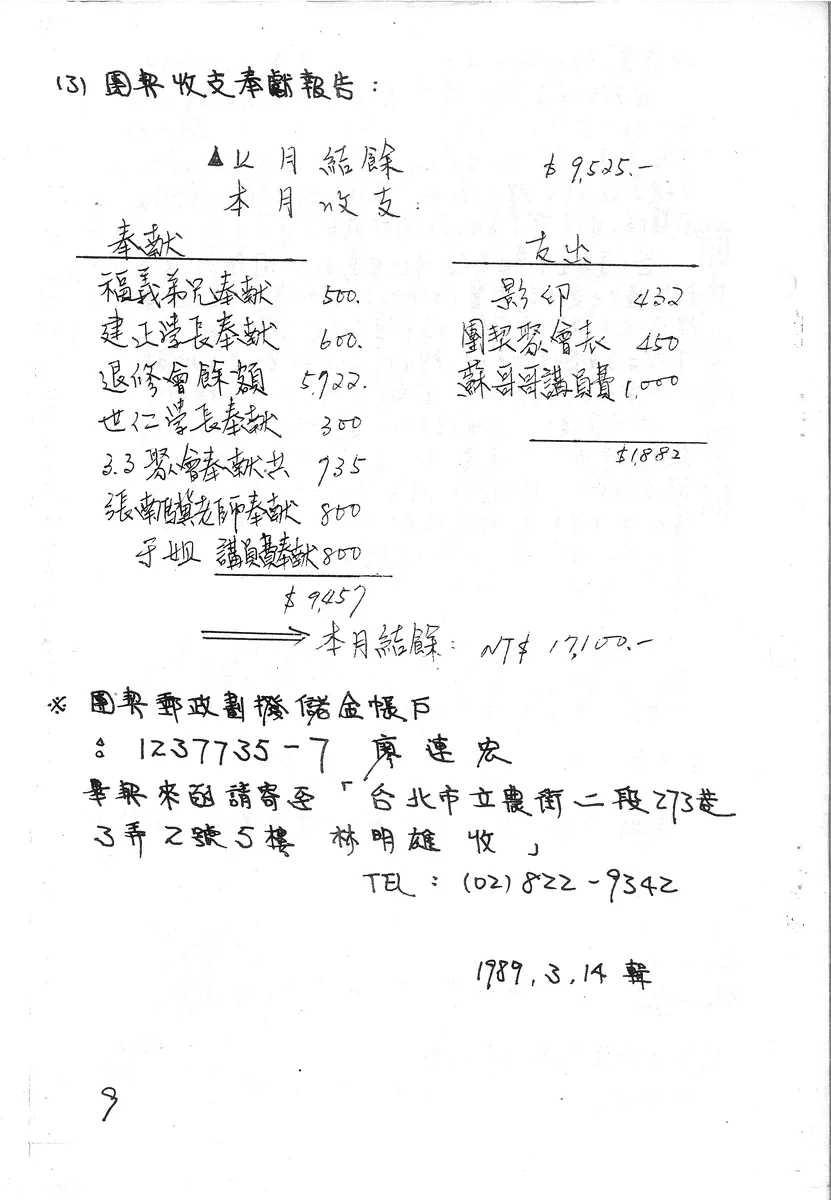 (3) 團契收支奉獻報告：
▲以月結餘 $9,525.-
本月收支：
奉献
福義弟兄奉献 500.
建正學長奉献 600.
退修會餘額 5,922.
世仁學長奉献 300
3.3聚會奉献共 935
張南驥老師奉献 800
于姐 講員費奉献 800
$9,457
支出
影印 432
團契聚會表 450
蘇哥哥講員費 1,000
$1,882
⟹ 本月結餘：NT$ 17,100.-
※ 團契郵政劃撥儲金帳戶
：1237735-7 廖連宏
畢契來函請寄至「台北市立農街二段273巷
3弄2號5樓 林明雄 收」
TEL：(02)822-9342
1989.3.14 輯
9